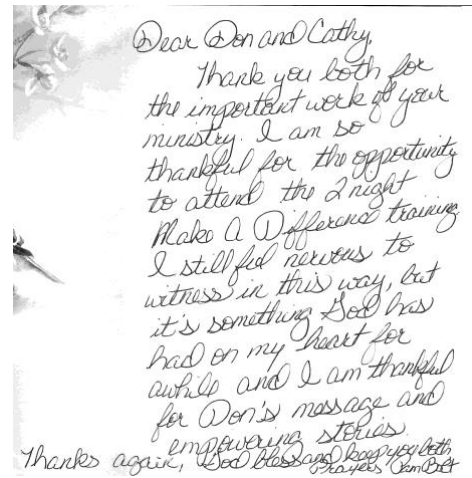 Dear Don and Cathy,
Thank you both for
the important work of your
ministry. I am so
thankful for the opportunity
to attend the 2 night
Make A Difference training.
I still feel nervous to
witness in this way, but
it's something God has
had on my heart for
awhile and I am thankful
for Don's message and
empowering stories.
Thanks again, God bless and keep you both
Prayers Pam